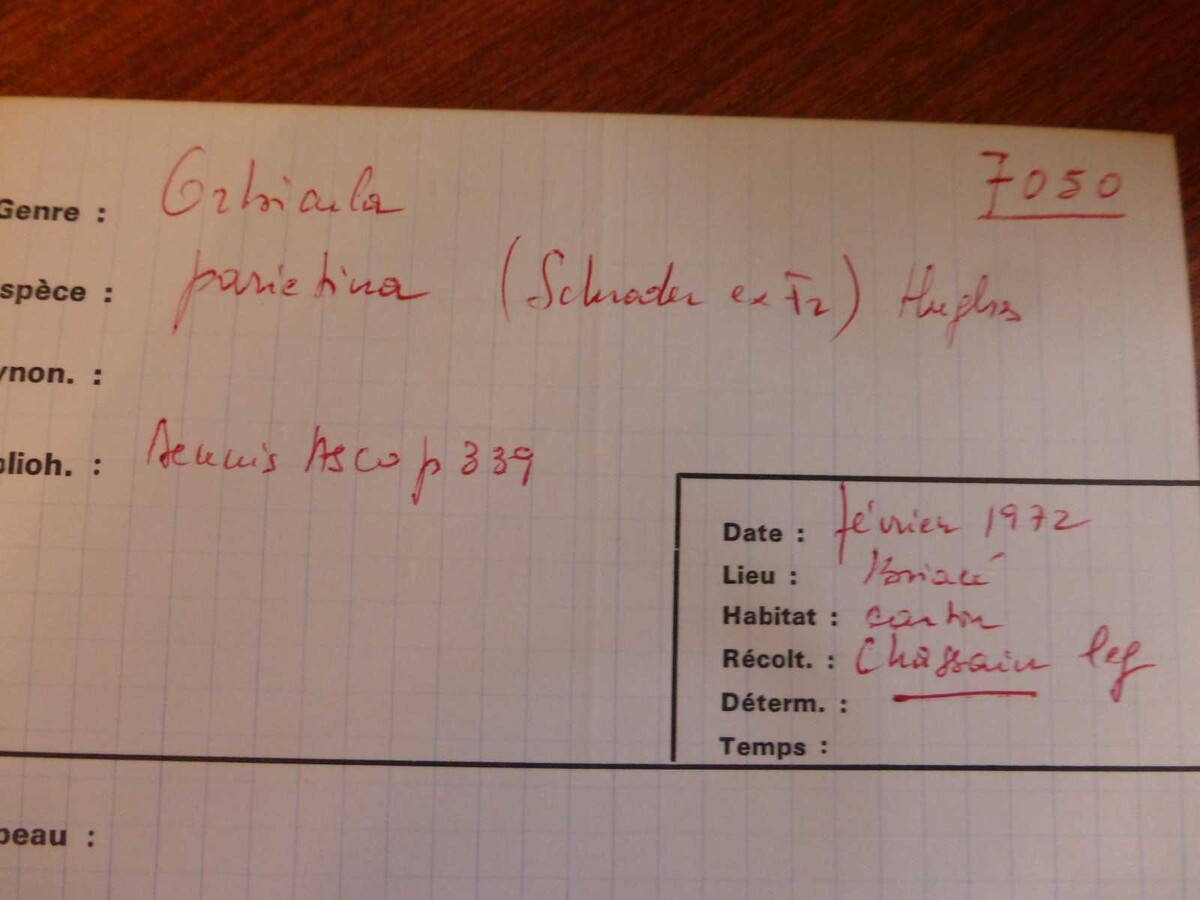 7050
Genre : Orbicula
spèce : parietina (Schrader ex Fr) Hughes
ynon. :
blioh. : Dennis Asco p 339
Date : février 1972
Lieu : Briacé
Habitat : carton
Récolt. : Chassain leg
Déterm. :
Temps :
peau :